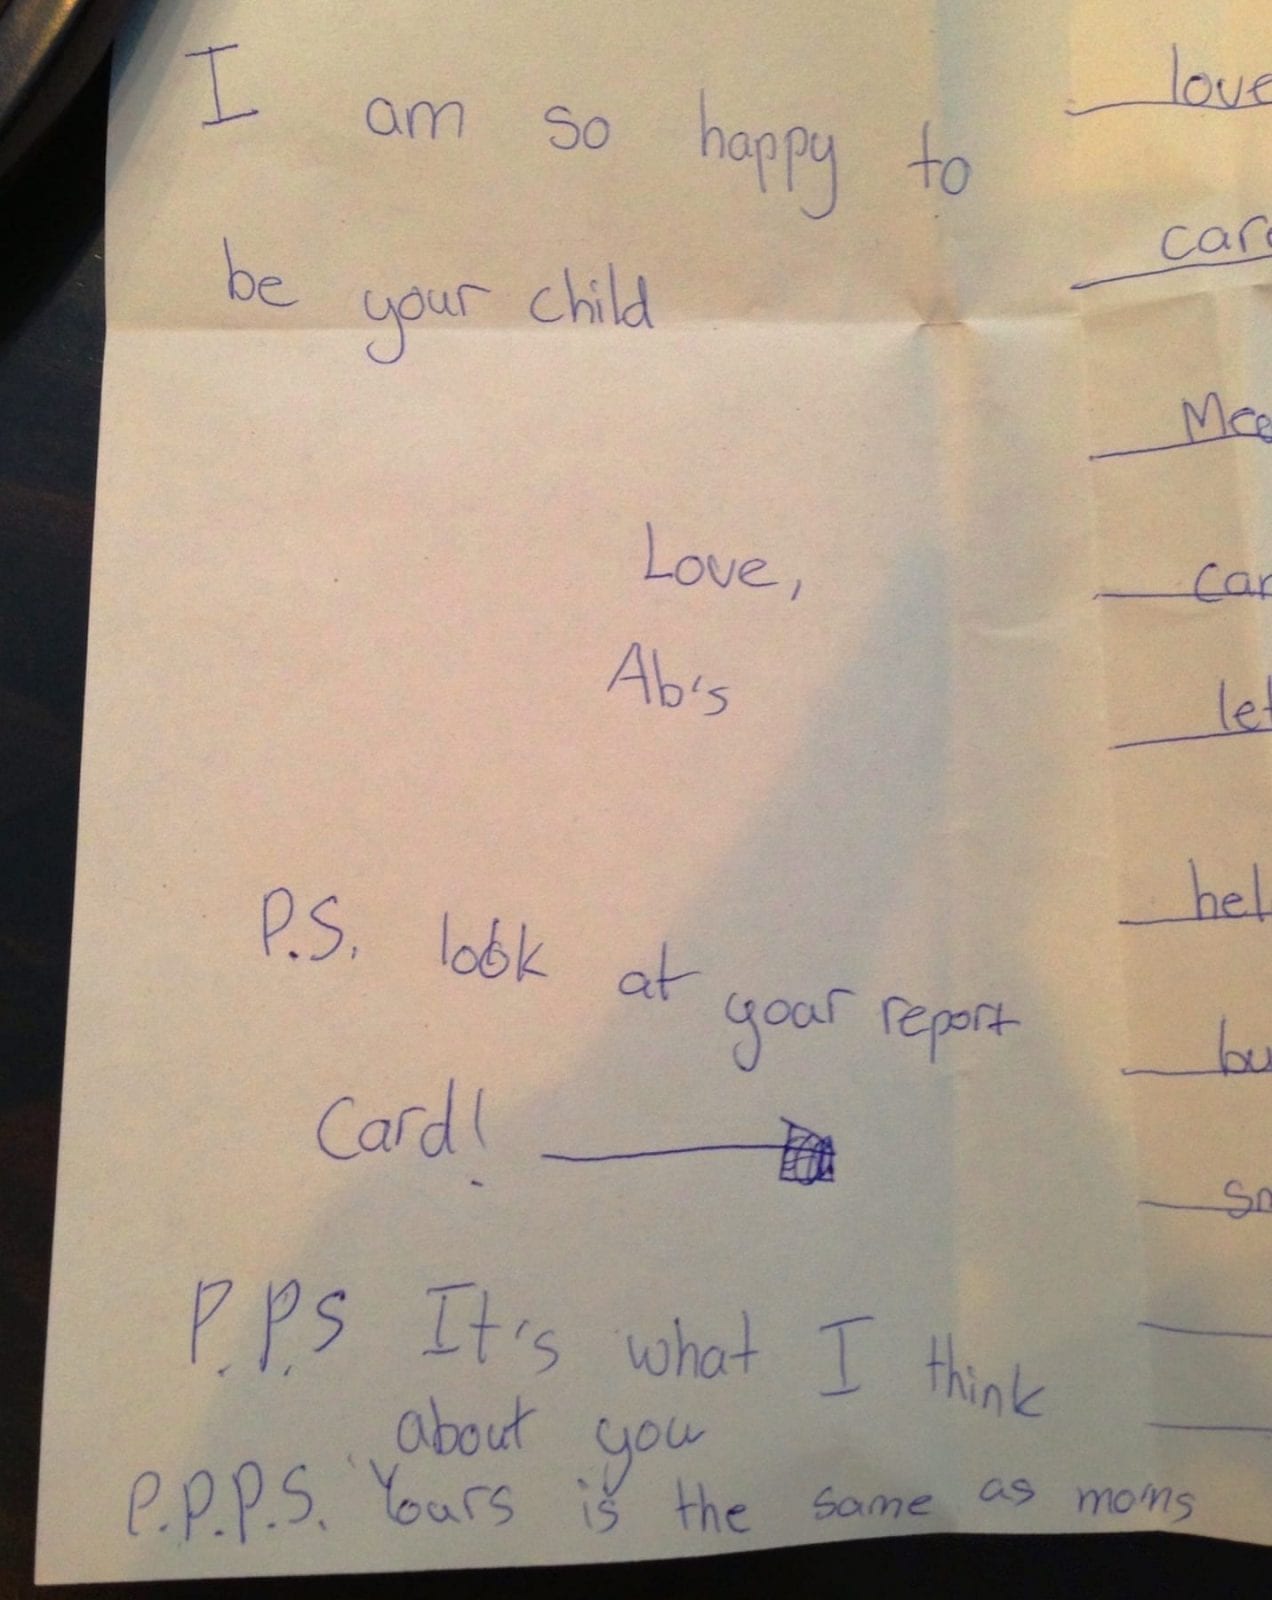 I am so happy to
be your child
Love,
Ab's
P.S. look at goar report
Card!
P.P.S It's what I think
about you
P.P.P.S. Yours is the same as mom's
love